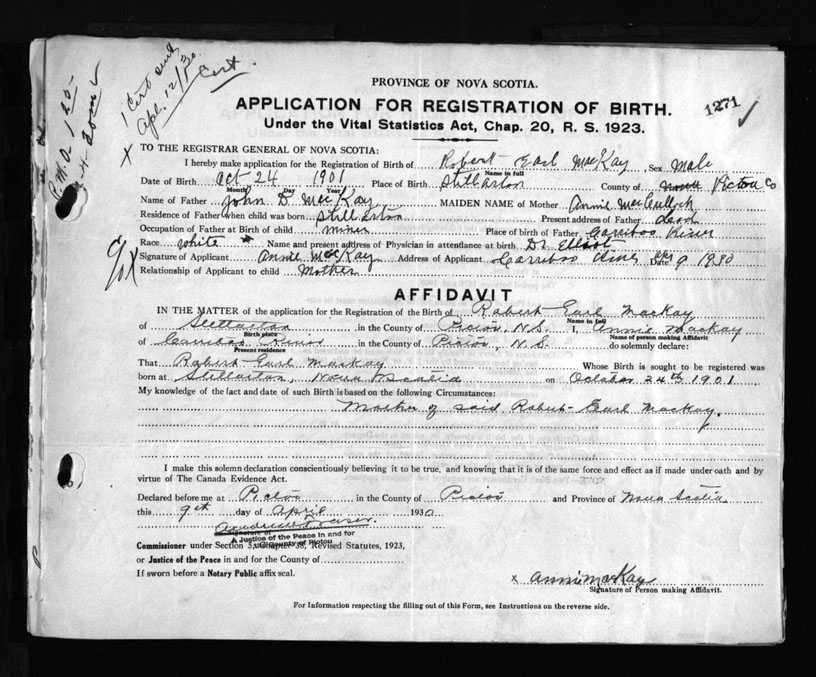 1 Cert sent
Apl. 12/30
Cert.
P.M.O 1 25
PROVINCE OF NOVA SCOTIA.
APPLICATION FOR REGISTRATION OF BIRTH.
1271
Under the Vital Statistics Act, Chap. 20, R. S. 1923.
X TO THE REGISTRAR GENERAL OF NOVA SCOTIA:
I hereby make application for the Registration of Birth of Robert Earl MacKay Sex Male
Name in full
Date of Birth Oct 24 1901 Place of Birth Stellarton County of Pictou Co
Month Day Year
Name of Father John D. MacKay MAIDEN NAME of Mother Annie MacCullock
Residence of Father when child was born Stellarton Present address of Father dead
Occupation of Father at Birth of child miner Place of birth of Father Carriboo River
Race white Name and present address of Physician in attendance at birth Dr. Elliot
Signature of Applicant Annie MacKay Address of Applicant Carriboo River Date Apr 9 1930
Relationship of Applicant to child Mother
AFFIDAVIT
IN THE MATTER of the application for the Registration of the Birth of Robert Earl MacKay
Name in full
of Stellarton in the County of Pictou, N.S. I, Annie MacKay
Birth place Name of person making Affidavit
of Carriboo River in the County of Pictou, N.S. do solemnly declare:
Present residence
That Robert Earl MacKay Whose Birth is sought to be registered was
born at Stellarton, Nova Scotia on October 24th 1901
My knowledge of the fact and date of such Birth is based on the following Circumstances:
Mother of said Robert Earl MacKay.
I make this solemn declaration conscientiously believing it to be true, and knowing that it is of the same force and effect as if made under oath and by
virtue of The Canada Evidence Act.
Declared before me at Pictou in the County of Pictou and Province of Nova Scotia
this 9th day of April 1930
Signature of
A Justice of the Peace in and for
the County of Pictou
Commissioner under Section 3, Chapter 38, Revised Statutes, 1923,
or Justice of the Peace in and for the County of
If sworn before a Notary Public affix seal.
x Annie MacKay
Signature of Person making Affidavit.
For Information respecting the filling out of this Form, see Instructions on the reverse side.